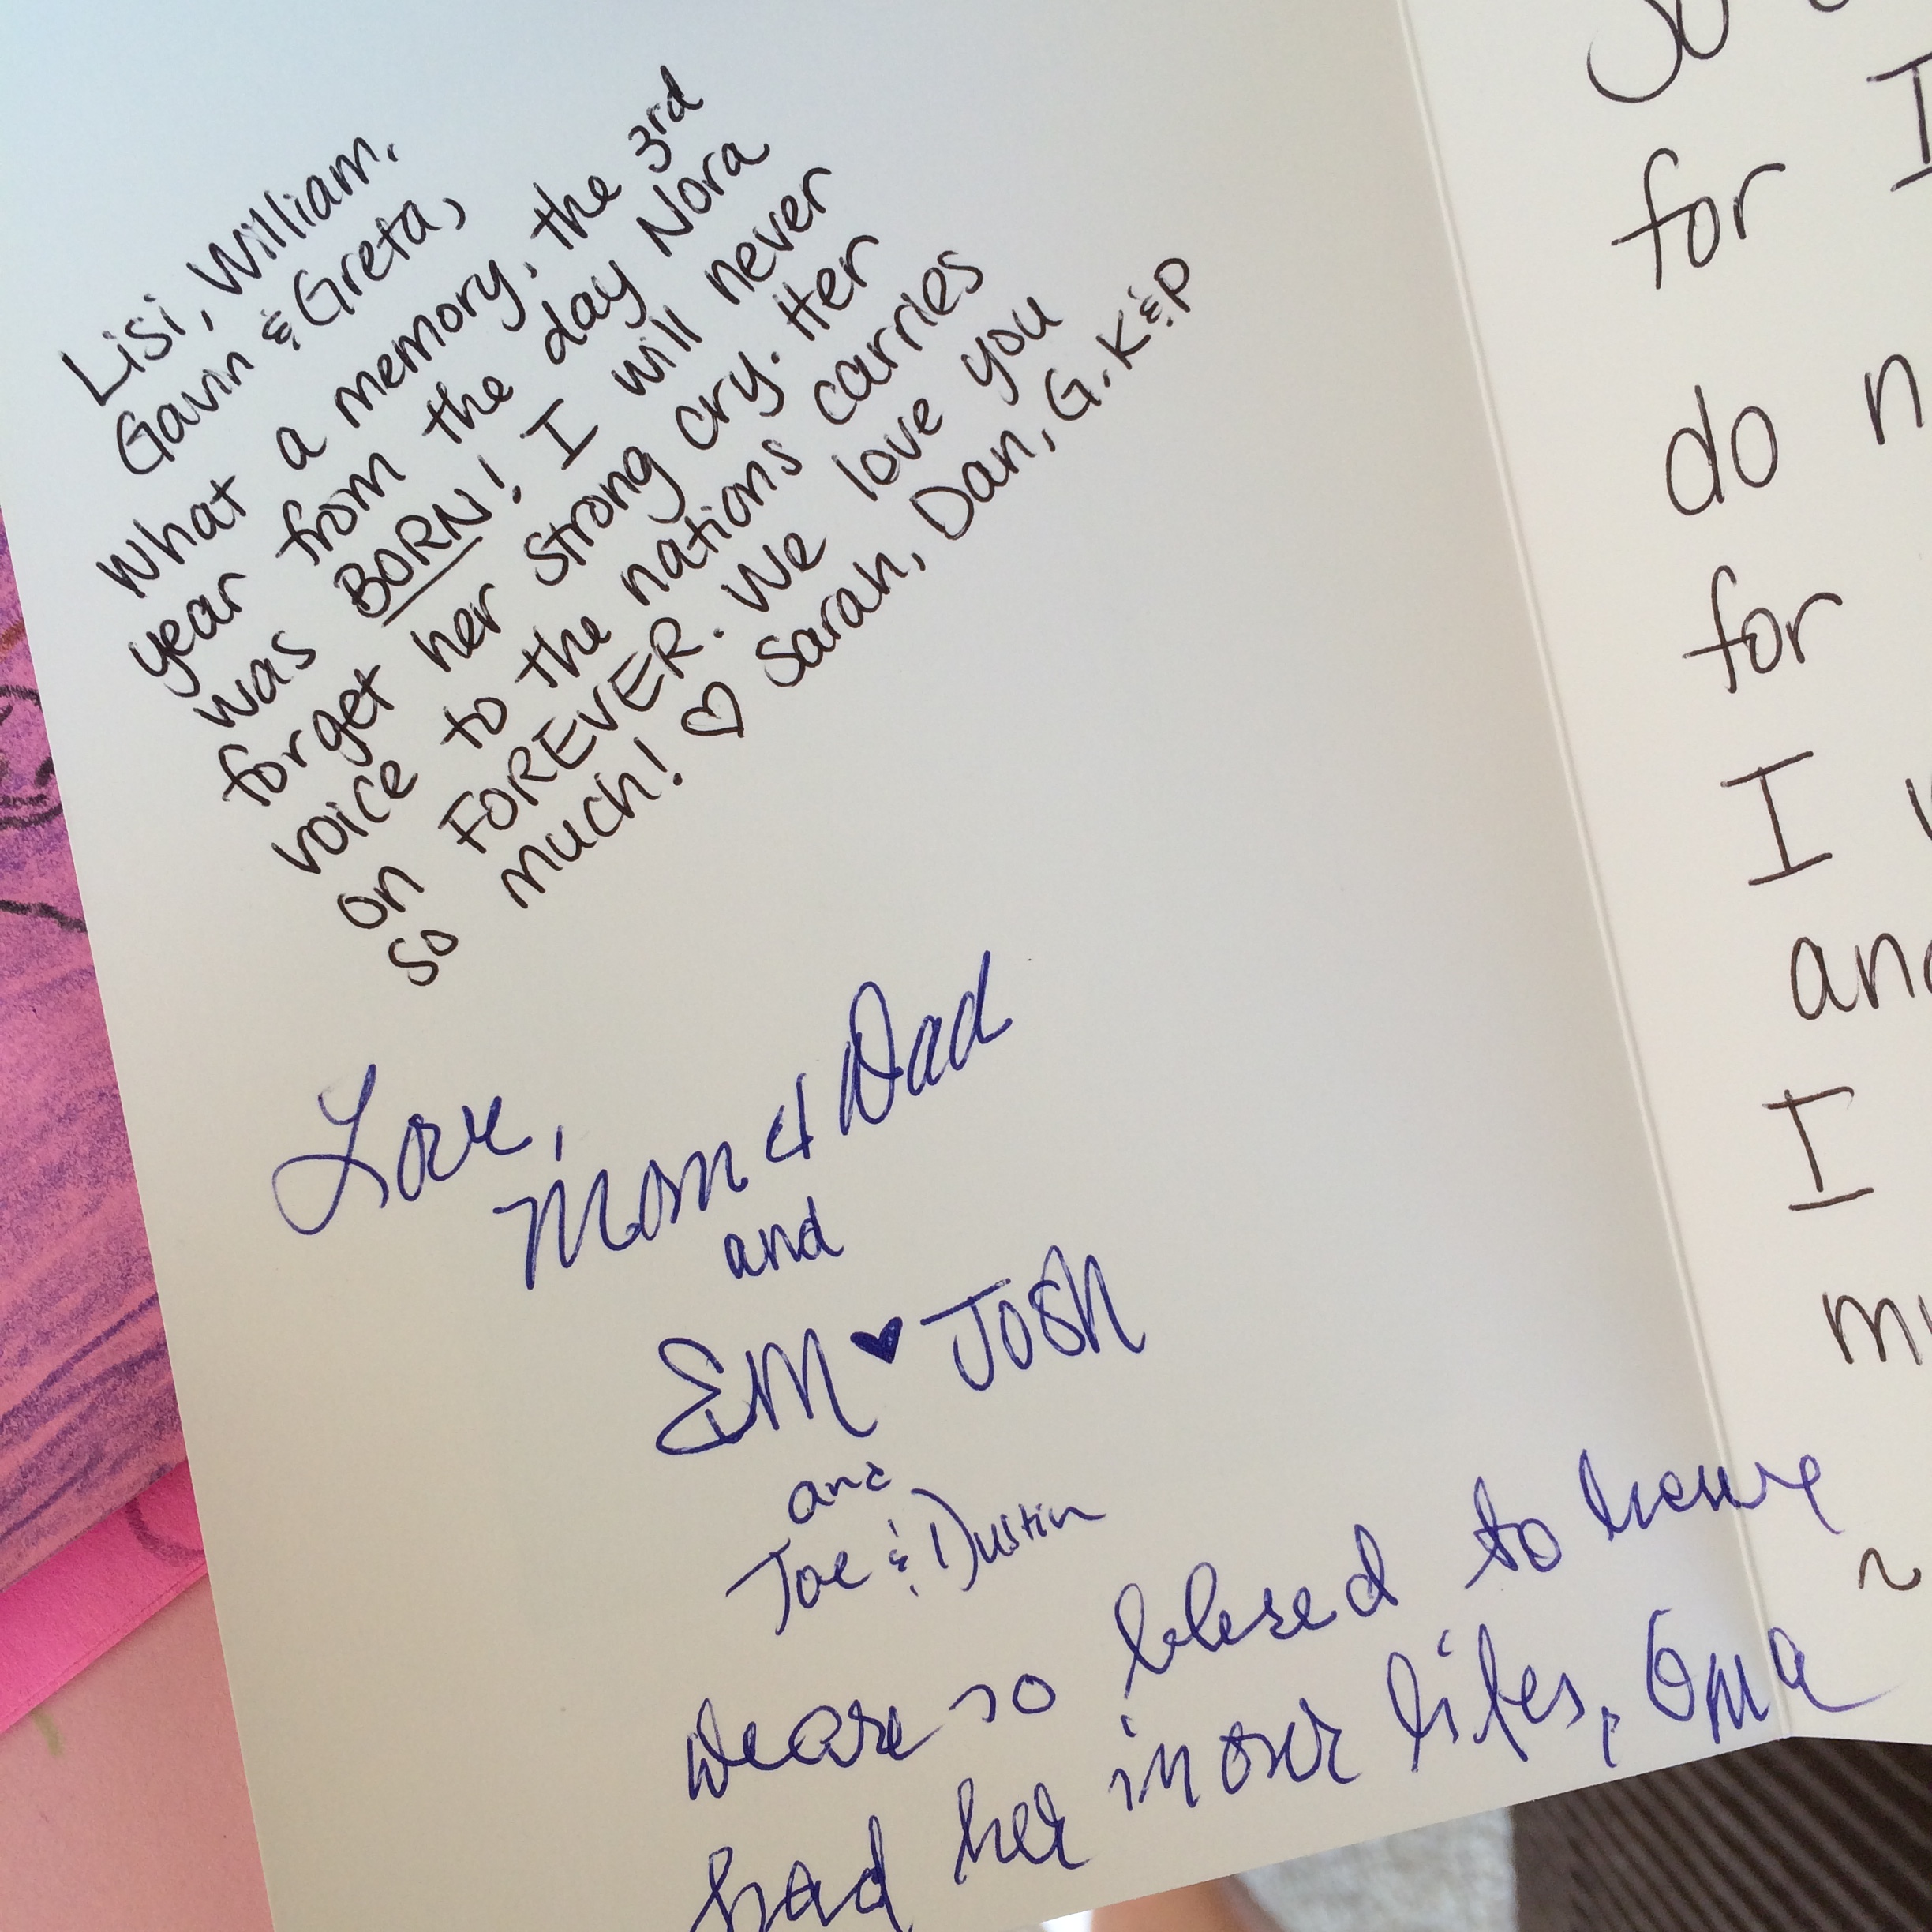 Lisi, William,
Gavin & Greta,
What a memory, the 3rd
year from the day Nora
was BORN! I will never
forget her strong cry. Her
voice to the nations carries
on FOREVER. We love you
so much! ♡ Sarah, Dan, G, K & P
Love,
Mom & Dad
and
Em ♥ Josh
and
Joe & Dustin
We are so blesed to have
had her in our lifes, Oma
for I
do n
for
I
and
I